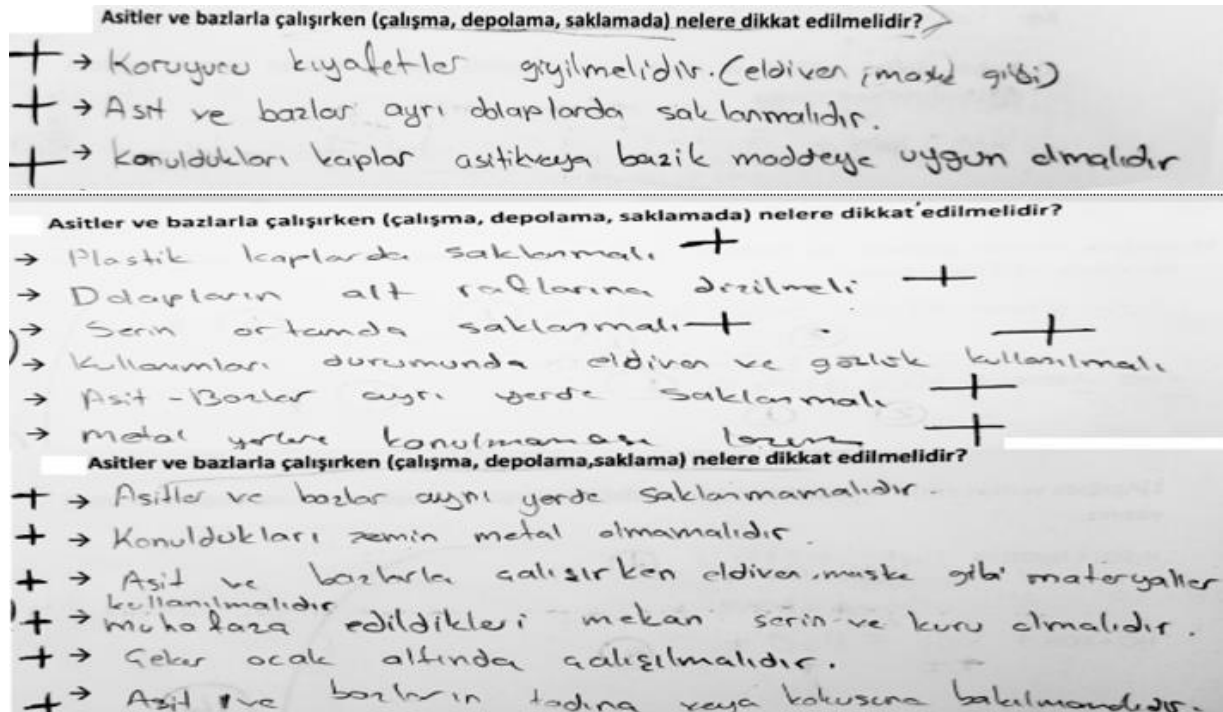 Asitler ve bazlarla çalışırken (çalışma, depolama, saklamada) nelere dikkat edilmelidir?
+ → Koruyucu kıyafetler giyilmelidir. (eldiven, maske gibi)
+ → Asit ve bazlar ayrı dolaplarda saklanmalıdır.
+ → Konuldukları kaplar asitikveya bazik maddeye uygun olmalıdır
Asitler ve bazlarla çalışırken (çalışma, depolama, saklamada) nelere dikkat edilmelidir?
→ Plastik kaplarda saklanmalı +
→ Dolapların alt raflarına dizilmeli +
→ Serin ortamda saklanmalı +
→ Kullanımları durumunda eldiven ve gözlük kullanılmalı +
→ Asit-Bazlar ayrı yerde saklanmalı +
→ metal yerlere konulmaması lazım +
Asitler ve bazlarla çalışırken (çalışma, depolama,saklama) nelere dikkat edilmelidir?
+ → Asitler ve bazlar aynı yerde saklanmamalıdır.
+ → Konuldukları zemin metal olmamalıdır.
+ → Asit ve bazlarla çalışırken eldiven, maske gibi materyaller
kullanılmalıdır
+ → muhafaza edildikleri mekan serin ve kuru olmalıdır.
+ → Çeker ocak altında çalışılmalıdır.
+ → Asit ve bazların tadına veya kokusuna bakılmamalıdır.